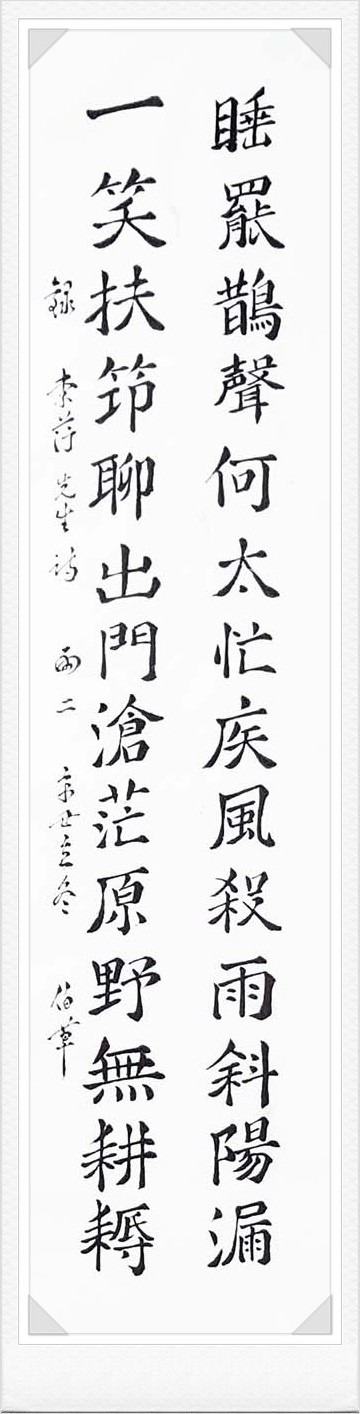 睡罷鵲聲何太忙疾風殺雨斜陽漏
一笑扶筇聊出門滄茫原野無耕耨
錄 素萍先生詩 两二 辛丑立冬 伯華